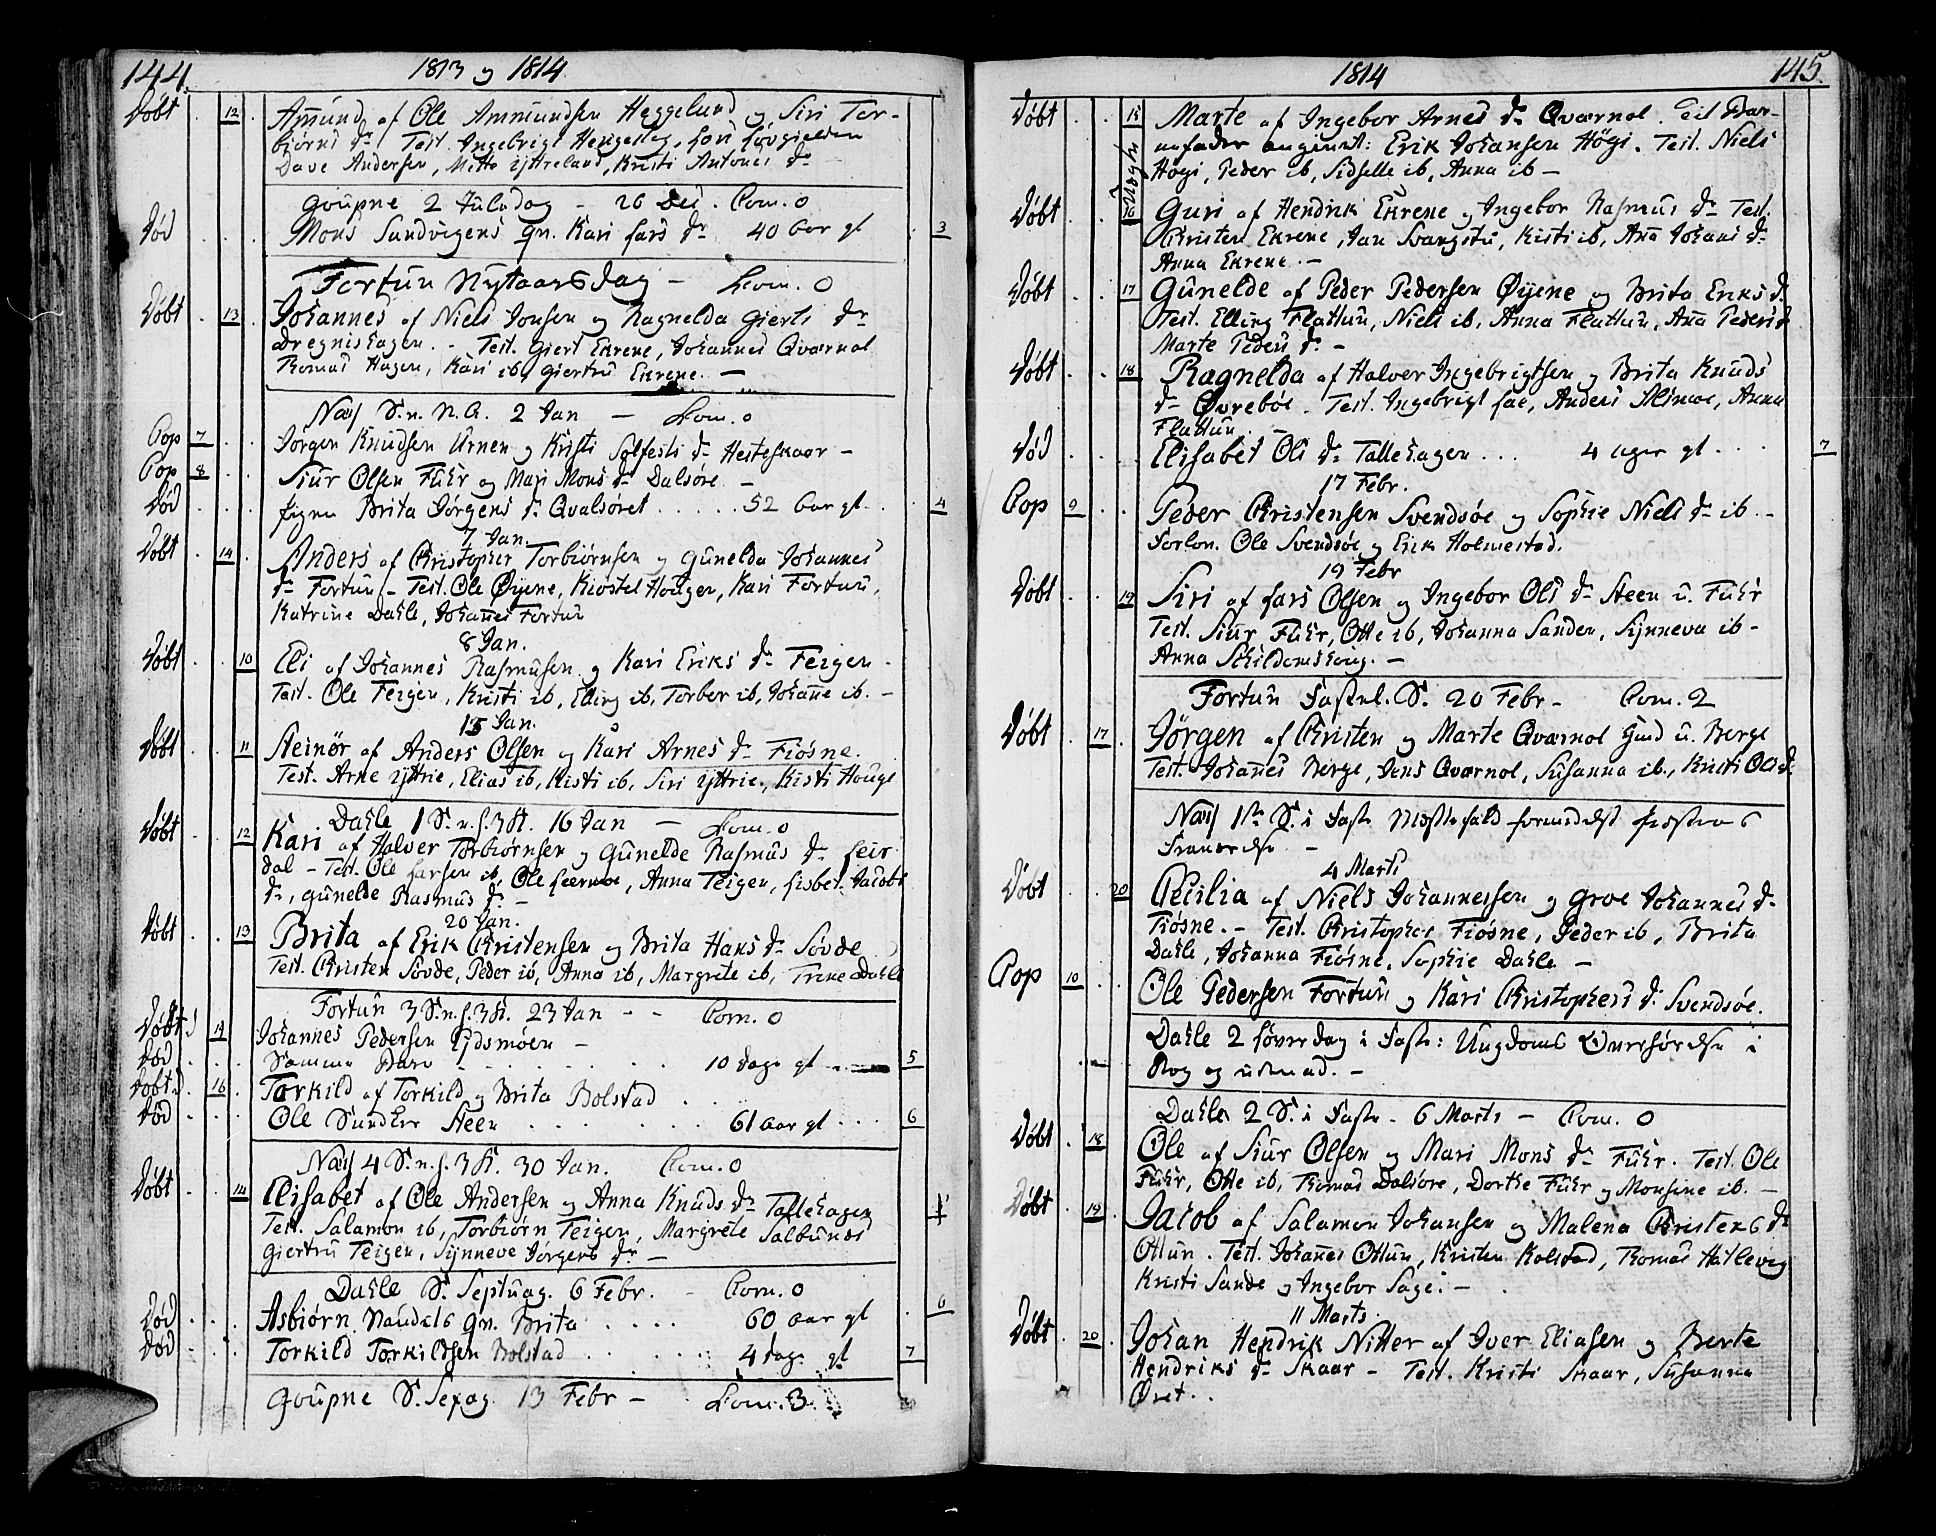 144. 1813 og 1814
Døbt 12 Amund af Ole Ammundsen Heggelund og Siri Tor-
biørns dr Test. Ingebrigt Hengesteg,
Dave Andersen, Mitte Yttreland, Kristi Antones dr
Goupne 2 Juledag - 26 Dec. Com. 0
Død Mons Sandvigens Qn. Kari Lars dr 40 Aar gl 3
Fortun Nytaarsdag - Com. 0
Døbt 13 Johannes af Niels Jonsen og Ragnelda Gierts dr
Dregnishagen. - Test. Giert Ekrene, Johannes Qværnol
Thomas Hagen, Kari ib, Giertru Ekrene. -
Næs S. n. N. A. 2 Jan - Com. 0
Cop 7 Jørgen Knudsen Urnen og Kristi Solfests dr Hesteskaar -
Cop 8 Siur Olsen Fuhr og Mari Mons dr Dalsøre -
Død Pigen Brita Jørgens dr Qvalsøret ..... 52 Aar gl. 4
7 Jan.
Døbt 14 Anders af Christopher Torbiørnsen og Gunelda Johannes
dr Fortun - Test. Ole Øyene, Kirstel Hougen, Kari Fortun,
Katrine Dahle, Johannes Fortun
8 Jan.
Døbt 10 Eli af Johannes Rasmusen og Kari Eriks dr Feigen -
Test. Ole Feigen, Kristi ib, Elling ib, Torber ib, Johanne ib. -
15 Jan.
Døbt 11 Steinør af Anders Olsen og Kari Arnes dr Fiøsne
Test. Arne Yttrie, Elias ib, Kisti ib, Siri Yttrie, Kisti Houge
Dahle 1 S. n. H. 3 K. 16 Jan - Com. 0
Døbt 12 Kari af Halver Torbiørnsen og Gunelde Rasmus dr Leir
dal - Test. Ole Larsen ib, Ole Leermoe, Anna Teigen, Lisbet Jacobs
dr, Gunelde Rasmus dr -
20 Jan.
Døbt 13 Brita af Erik Christensen og Brita Hans dr Søvde
Test. Christen Søvde, Peder ib, Anna ib, Margrete ib, Trine Dahle
Fortun 3 S. n. H. 3 K. 23 Jan - - Com. 0
Døbt 19 Johannes Pedersen Eidsmoen -
Død Samme Barn ...... 10 Dage gl 5
Døbt. 16 Torkild af Torkild og Brita Bolstad
Død Ole Sundkre Steen ....... 61 Aar gl ... 6
Næs 4 S. n. H. 3 K. 30 Jan. Com. 0
Døbt 14 Elisabet af Ole Andersen og Anna Knuds dr Tallehagen
Test. Salamon ib, Torbiørn Teigen, Margrete Salbunes
Giertru Teigen, Synneve Jørgens dr -
Dahle S. Septuag. 6 Febr. - Com. 0
Død Asbiørn Naudals Qn. Brita ..... 60 Aar gl 6
Død Torkild Torkildsen Bolstad ...... 4 Dage gl 7
Goupne S. Sexag. 13 Febr - Com. 3
1814 145.
Døbt 15 Marte af Ingebor Arnes dr Qværnol. Til Bar-
nefader angivet: Erik Johansen Høgi. Test. Niels
Høgi, Peder ib, Sidselle ib, Anna ib -
Døbt 16 Guri af Hendrik Ekrene og Ingebor Rasmus dr Test.
Christen Ekrene, Jan Svangstu, Kisti ib, Anna Johans dr
Anna Ekrene. -
Døbt 17 Gunelde af Peder Pedersen Øyene og Brita Eriks dr
Test. Elling Flattun, Niels ib, Anna Flattun, Anna Peders dr
Marte Peders dr -
Døbt 18 Ragnelda af Halver Ingebrigtsen og Brita Knuds
dr Øvrebøe. Test. Ingebrigt Lae, Anders Alimoe, Anna
Flattun.
Død Elisabet Ols dr Tallehagen ... 4 Uger gl ... 7
17 Febr.
Cop 9 Peder Christensen Svendsøe og Sophie Niels dr ib -
Forlov. Ole Svendsøe og Erik Holmestad.
19 Febr
Døbt 19 Siri af Lars Olsen og Ingebor Ols dr Steen u. Fuhr
Test. Siur Fuhr, Otte ib, Johanna Sanden, Synneva ib -
Anna Schildemshoug. -
Fortun Fastel. S. 20 Febr - Com. 2
Døbt 17 Jørgen af Christen og Marte Qværnol Huusmd u. Berge
Test. Johannes Berge, Jens Qværnol, Susanna ib., Kristi Ols dr
Næs 1ste S. i Faste Messefald formedelst Præstens
Fraværelse -
4 Marts
Døbt 20 Cecilia af Niels Johannessen og Groe Johannes dr
Fiøsne. - Test. Christopher Fiøsne, Peder ib, Brita
Dahle, Johanna Fiøsne, Sophie Dahle -
Cop 10 Ole Pedersen Fortun og Kari Christophers dr Svendsøe.
Dahle 2 Løverdag i Faste: Ungdoms Overhørelse i
Bog og udenad. -
Dahle 2 S. i Faste - 6 Marts - Com. 0
Døbt 18 Ole af Siur Olsen og Mari Mons dr Fuhr. Test. Ole
Fuhr, Otte ib, Thomas Dalsøre, Dorthe Fuhr og Monsine ib. -
Døbt 19 Jacob af Salamon Johansen og Malena Christens dr
Ottun. Test. Johannes Ottun, Kristen Kolstad, Thomas Hatlevig
Kristi Sande og Ingebor Sage. -
11 Marts
Døbt 20 Johan Hendrik Nitter af Iver Eliasen og Berte
Hendriks dr Skaar - Test. Kristi Skaar, Susanna
Øret.